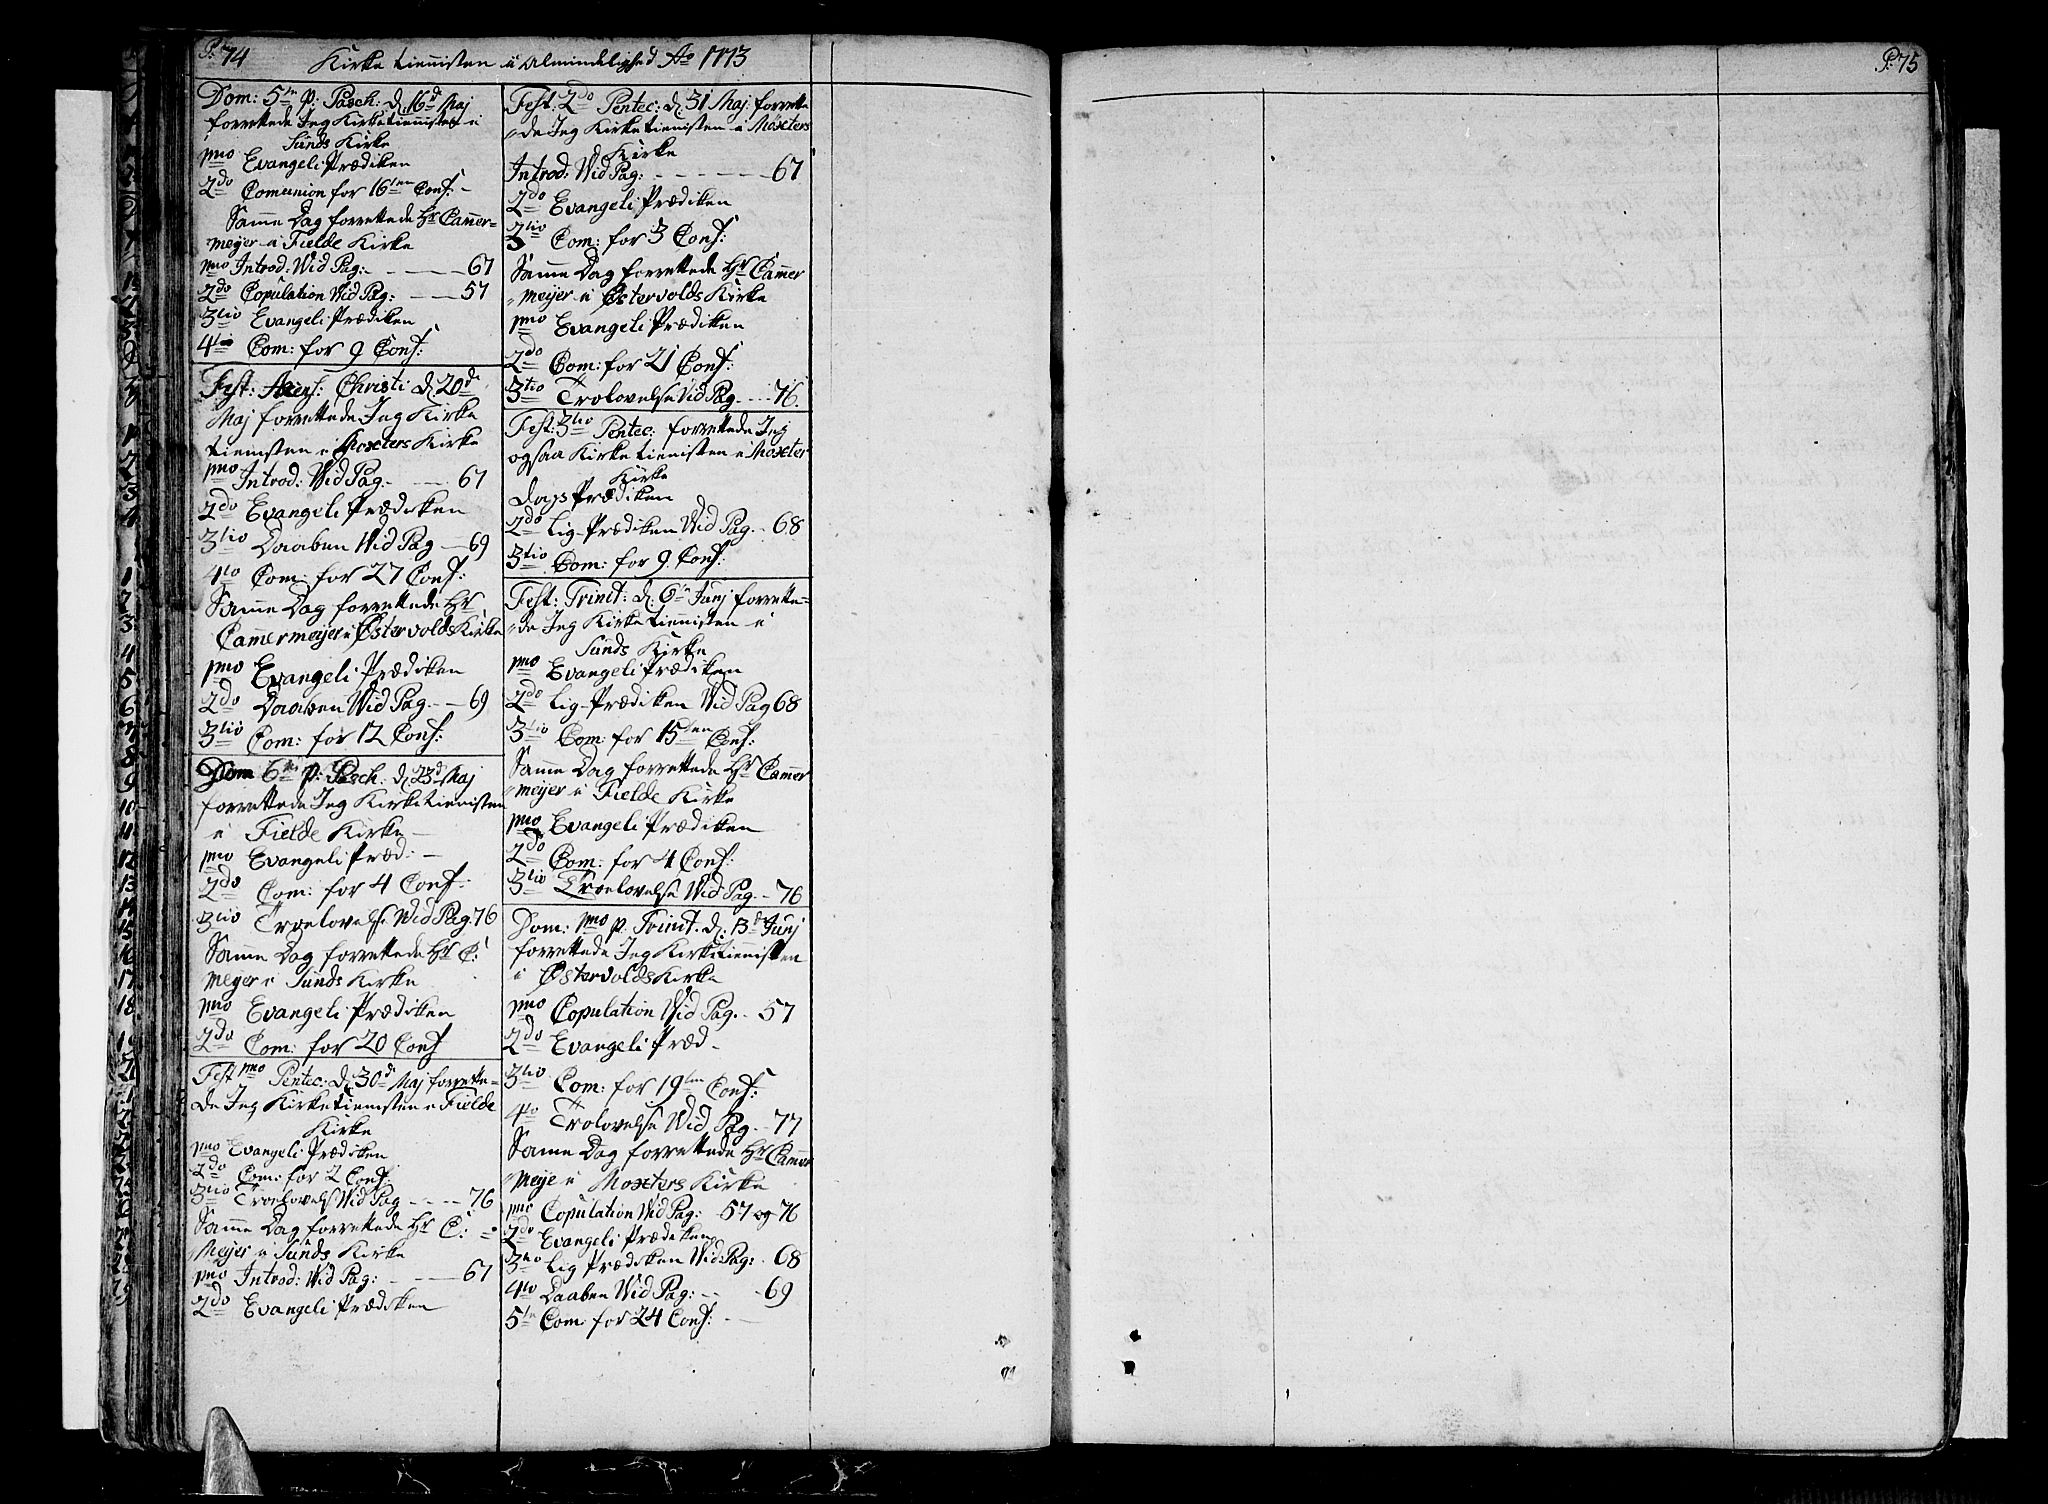 P. 74
Kirke tiennisten i Almindelighed Ao 1773
Dom: 5te p: Pasch: d. 16d Maj
forrettede Jeg Kirketiennisten i
Sunds Kirke
pmo Evangeli Prædiken
2do Comunion for 16ten Conf:
Samme Dag forrettede Hr Cammer=
meyer i Fielde Kirke
pmo Introd: Wid Pag: 67
2do Copulation Wid Pag: 57
3tio Evangeli Prædiken
4to Com: for 9 Conf:
Fest: Ascens: Christi d. 20d
Maj forrettede Jeg Kirke
tiennsten i Moxters Kirke
pmo Introd: Wid Pag. 67
2do Evangeli Prædiken
3tio Daaben Wid Pag 69
4to Com: for 27 Conf:
Samme Dag forrettede Hr
Cammermeijer i Østervolds Kirke
pmo Evangeli Prædiken
2do Daaben Wid Pag. 69
3tio Com: for 12 Conf:
Dom 6te p: Pasch: d. 23d Maj
forrettede Jeg Kirketiennisten
i Fielde Kirke
pmo Evangeli Præd:
2do Com: for 4 Conf:
3tio Troelovelse Wid Pag: 76
Samme Dag forrettede Hr C:
meyer i Sunds Kirke
pmo Evangeli Prædiken
2do Com: for 20 Conf
Fest pmo Pentec: d. 30d Maj forrette=
de Jeg Kirketiennsten i Fielde
Kirke
pmo Evangeli Prædiken
2do Com: for 2 Conf:
3tio Troelovels Wid Pag 76
Samme Dag forrettede Hr C:=
Meijer i Sunds Kirke
pmo Introd: Wid Pag: 67
2do Evangeli Prædiken
Fest. 2do Pentec: d. 31 Maj forrette
de Jeg Kirketiennisten i Moxters
Kirke
Introd: Wid Pag: 67
2do Evangeli Prædiken
3tio Com: for 3 Conf:
Samme Dag forrettede Hr Cammer
meijer i Østervolds Kirke
pmo Evangeli Prædiken
2do Com: for 21 Conf:
3tio Trolovelse Wid Pag. 76.
Fest: 3tio Pentec: forrettede Jeg
ogsaa Kirketiennisten i Moxter
Kirke
Dags Prædiken
2do Lig-Prædiken Wid Pag. 68
3tio Com: for 9 Conf:
Fest: Trinit: d. 6te Junj forrette=
de Jeg Kirketiennisten i
Sunds Kirke
pmo Evangeli Prædiken
2do Lig-Prædiken Wid Pag 68
3tio Com: for 15ten Conf:
Samme Dag forrettede Hr Cammer
meijer i Fielde Kirke
pmo Evangeli Prædiken
2do Com: for 4 Conf:
3tio Troelovelse Wid Pag. 76
Dom: pmo p: Trinit. d. 13d Junj
forrettede Jeg Kirketiennisten
i Østervolds Kirke
pmo Copulation Wid Pag. 57
2do Evangeli Præd
3tio Com: for 19ten Conf:
4to Trolovelse Wid Pag. 77
Samme Dag forrettede Hr Cammer
Meije i Moxters Kirke
pmo Copulation Wid Pag: 57 og 76
2do Evangeli Prædiken
3tio Lig Prædiken Wid Pag: 68
4to Daaben Wid Pag: 69
5te Com: for 24 Conf:
P. 75